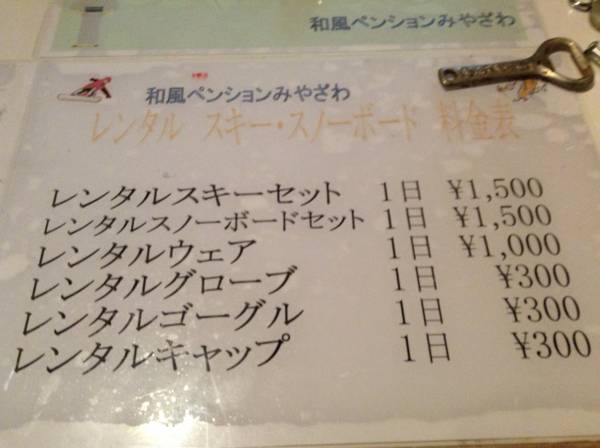 和風ペンションみやざわ
和風ペンションみやざわ
レンタル スキー・スノーボード 料金表
レンタルスキーセット 1日 ¥1,500
レンタルスノーボードセット 1日 ¥1,500
レンタルウェア 1日 ¥1,000
レンタルグローブ 1日 ¥300
レンタルゴーグル 1日 ¥300
レンタルキャップ 1日 ¥300